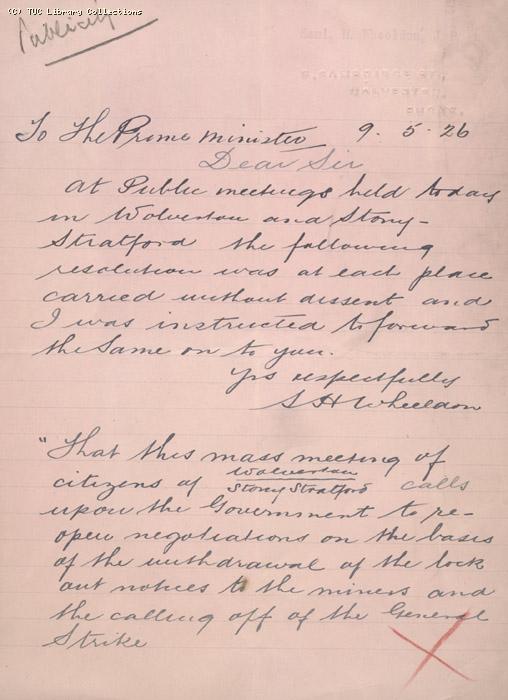 (C) TUC Library Collections
Publicity
To The Prime Minister 9. 5. 26
Dear Sir
At Public meetings held today
in Wolverton and Stony-
Stratford the following
resolution was at each place
carried without dissent and
I was instructed to forward
the same on to you.
Yrs respectfully
S H Wheeldon
"That this mass meeting of
citizens of Wolverton
Stony Stratford calls
upon the Government to re-
open negotiations on the basis
of the withdrawal of the lock
out notices to the miners and
the calling off of the General
Strike